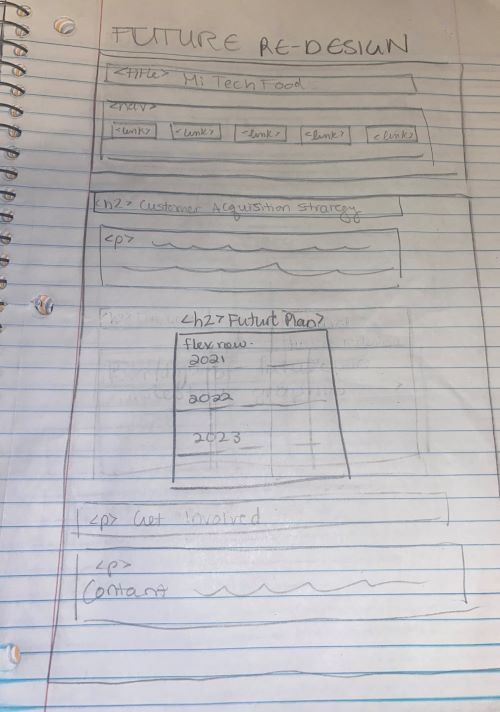 FUTURE RE-DESIGN
<title> Mi Tech Food
<nav>
<link> <link> <link> <link> <link>
<h2> Customer Acquisition Strargy
<p>
<h2> Future Plan>
flex row.
2021
2022
2023
<p> Get Involved
<p>
Contant